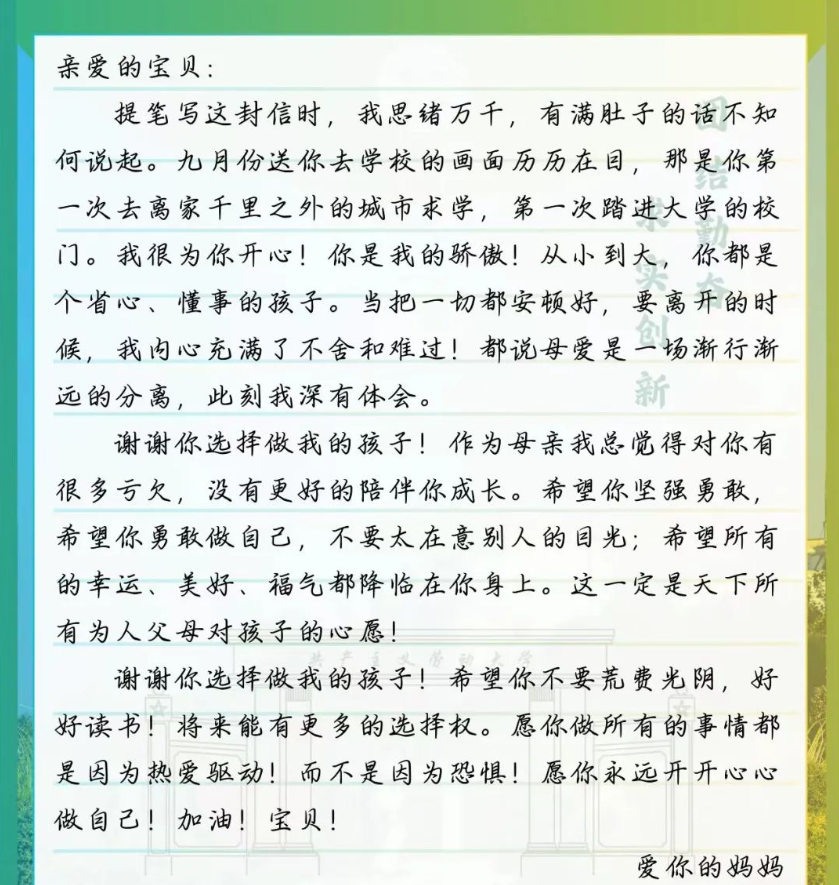 亲爱的宝贝：
提笔写这封信时，我思绪万千，有满肚子的话不知
何说起。九月份送你去学校的画面历历在目，那是你第
一次去离家千里之外的城市求学，第一次踏进大学的校
门。我很为你开心！你是我的骄傲！从小到大，你都是
个省心、懂事的孩子。当把一切都安顿好，要离开的时
候，我内心充满了不舍和难过！都说母爱是一场渐行渐
远的分离，此刻我深有体会。
谢谢你选择做我的孩子！作为母亲我总觉得对你有
很多亏欠，没有更好的陪伴你成长。希望你坚强勇敢，
希望你勇敢做自己，不要太在意别人的目光；希望所有
的幸运、美好、福气都降临在你身上。这一定是天下所
有为人父母对孩子的心愿！
谢谢你选择做我的孩子！希望你不要荒费光阴，好
好读书！将来能有更多的选择权。愿你做所有的事情都
是因为热爱驱动！而不是因为恐惧！愿你永远开开心心
做自己！加油！宝贝！
爱你的妈妈
团结勤奋
求实创新
共产主义劳动大学